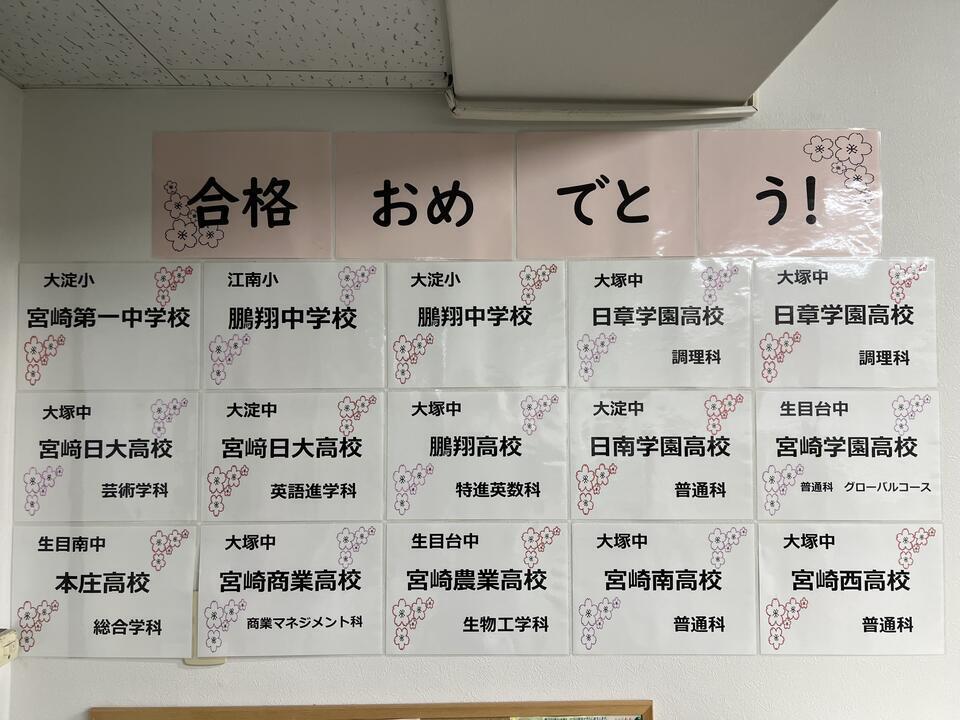 合格おめでとう!
大淀小
宮崎第一中学校
江南小
鵬翔中学校
大淀小
鵬翔中学校
大塚中
日章学園高校
調理科
大塚中
日章学園高校
調理科
大塚中
宮﨑日大高校
芸術学科
大淀中
宮﨑日大高校
英語進学科
大塚中
鵬翔高校
特進英数科
大淀中
日南学園高校
普通科
生目台中
宮崎学園高校
普通科 グローバルコース
生目南中
本庄高校
総合学科
大塚中
宮崎商業高校
商業マネジメント科
生目台中
宮崎農業高校
生物工学科
大塚中
宮崎南高校
普通科
大塚中
宮崎西高校
普通科